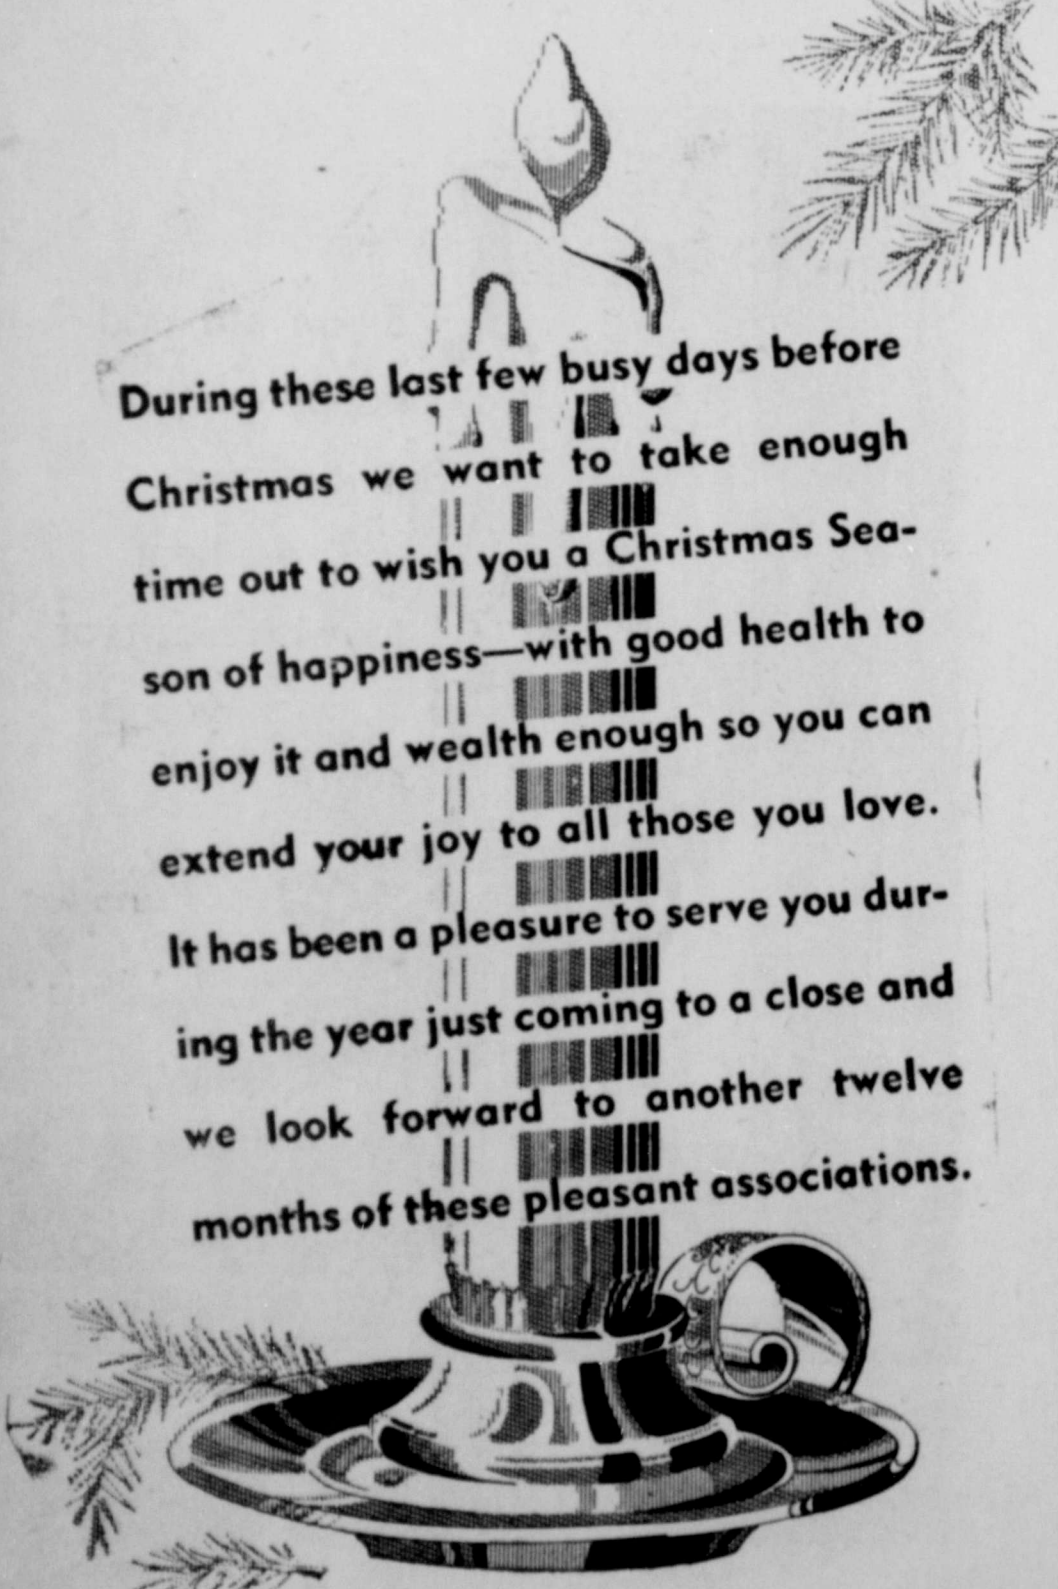 During these last few busy days before
Christmas we want to take enough
time out to wish you a Christmas Sea-
son of happiness—with good health to
enjoy it and wealth enough so you can
extend your joy to all those you love.
It has been a pleasure to serve you dur-
ing the year just coming to a close and
we look forward to another twelve
months of these pleasant associations.